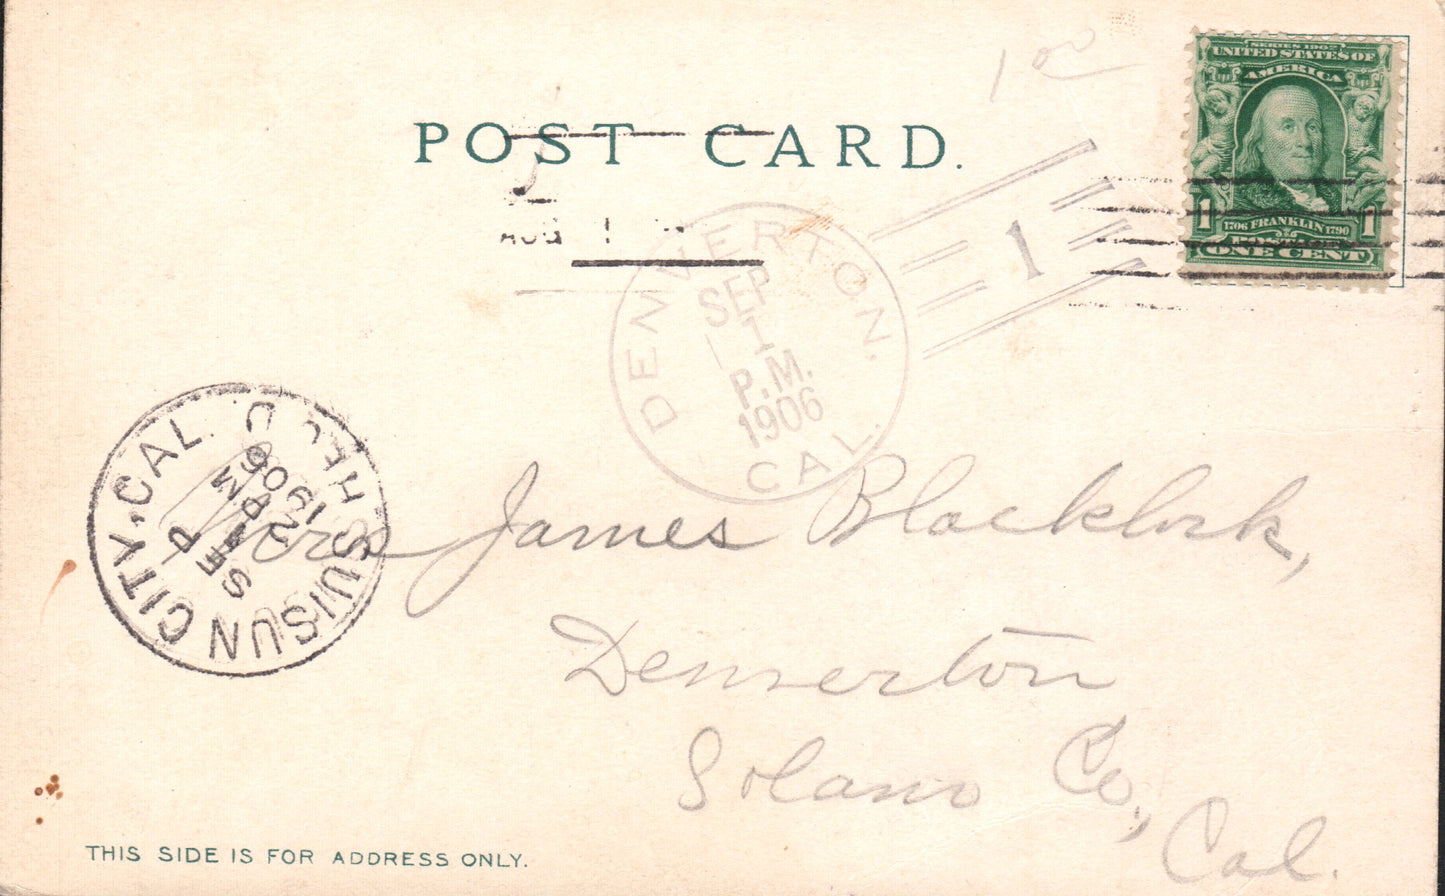 1 00
SERIES 1902
UNITED STATES OF
AMERICA
1 1706 FRANKLIN 1790 1
ONE CENT
POST CARD.
AUG 1
DENVERTON,
CAL.
SEP
1
P.M.
1906
1
SUISUN CITY, CAL.
REC'D
SEP
1
2-PM
1906
Mrs James Blacklock,
Denverton
Solano Co.,
Cal.
THIS SIDE IS FOR ADDRESS ONLY.